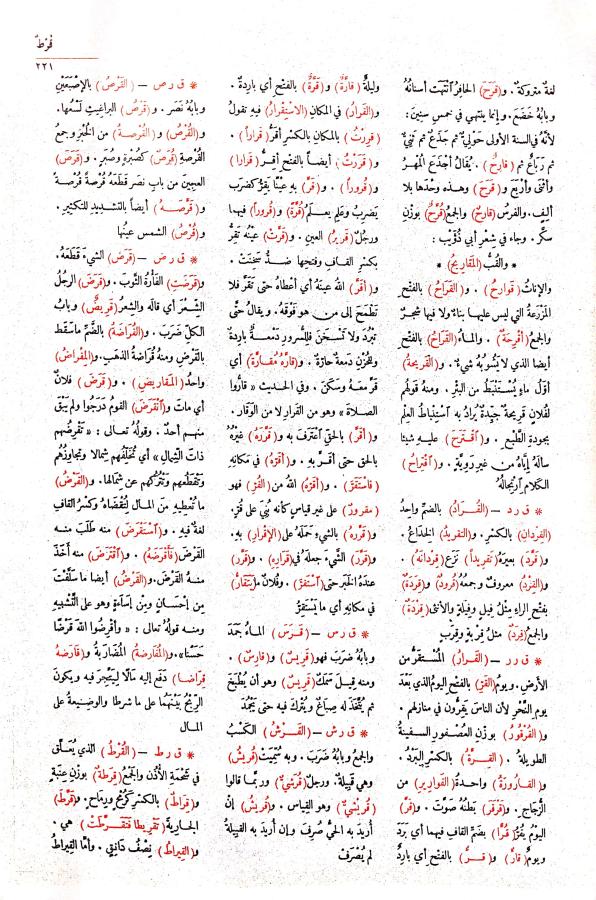 قرط
٢٢١
لغة متروكة . و(قَرَحَ) الحافِرُ انْتَهت أسنانُهُ
وبابُهُ خَضَعَ . وإنما ينتهي في خمس سِنينَ :
لأنه في السنة الأولى حَوْلِيٌّ ثم جَذَعٌ ثم ثَنِيٌّ
ثم رَبَاعٌ ثم (قارِحٌ) . يُقالُ أَجْذَعَ المُهْرُ
وأثنى وأرْبَعَ و(قَرَحَ) وهذه وحْدَها بلا
ألِفٍ . والفرسُ (قارِحٌ) والجمعُ (قُرَّحٌ) بوزْن
سكَّرٍ . وجاء في شعر أبي ذُؤَيب :
* والقُبُّ (المَقَارِيحُ) *
والإناثُ (قَوارِحُ) . و(القَرَاحُ) بالفتح
المَزْرَعَةُ التي ليس عليها بناءٌ ولا فيها شجرٌ
والجمعُ (أقْرِحَةٌ) . والماءُ (القَرَاحُ) بالفتح
أيضا الذي لا يَشُوبُهُ شيءٌ . و(القَرِيحةُ)
أوّلُ ماءٍ يُسْتَنْبَطُ من البئرِ . ومنه قولُهم
لفُلانٍ قَرِيحةٌ جيِّدةٌ يُراد به استِنْباطُ العِلْم
بجودةِ الطَّبْع . و(اقْتَرَحَ) عليه شيئا
سألَهُ إيَّاهُ من غير رَوِيَّةٍ . و(اقتِرَاحُ)
الكلام ارتِجالُهُ
* ق ر د – (القُرَادُ) بالضمِّ واحدُ
(القِرْدانِ) بالكسْر . و(التقريدُ) الخِداعُ .
و(قَرَّدَ) بعيرَهُ (تَقريداً) نَزَعَ (قِرْدانَهُ) .
و(القِرْدُ) معروفٌ وجمعُهُ (قُرُودٌ) و(قِرَدَةٌ)
بفتح الراءِ مثلُ فِيلٍ وفِيَلَةٍ والأنثى (قِرْدَةٌ)
والجمعُ (قِرَدٌ) مثلُ قِرْبةٍ وقِرَبٍ
* ق ر ر – (القَرارُ) المُسْتَقَرُّ من
الأرض . ويومُ (القَرِّ) بالفتح اليومُ الذي بَعْدَ
يوم النَّحْرِ لأن الناسَ يَقِرُّون في منازلهم .
و(القُرْقُورُ) بوزن العُصْفُورِ السفينةُ
الطويلةُ . و(القِرَّةُ) بالكسر البَرْدُ .
و(القارُورَةُ) واحدةُ (القَوارِيرِ) من
الزُّجاج . و(قَرْقَرَ) بَطْنُهُ صَوَّتَ . و(قَرَّ)
اليومُ يَقُرُّ (قُرًّا) بضم القاف فيهما أي بَرَدَ
ويومٌ (قارٌّ) و(قَرٌّ) بالفتح أي باردٌ
وليلةٌ (قارَّةٌ) و(قَرَّةٌ) بالفتح أي باردةٌ .
و(القَرارُ) في المكانِ (الاستِقْرارُ) فيه تقولُ
(قَرِرْتُ) بالمكان بالكسرِ أَقَرُّ (قَراراً) .
و(قَرَرْتُ) أيضاً بالفتح أَقِرُّ (قَرارا)
و(قُروراً) . و(قَرَّ) به عيْنًا يَقِرُّ كضَرب
يَضرِبُ وعَلِم يعلَمُ (قُرَّةً) و(قُروراً) فيهما
ورجلٌ (قَرِيرُ) العين . و(قَرَّتْ) عينُه تَقَرُّ
بكسْر القاف وفتحها ضدُّ سَخِنَتْ .
و(أقَرَّ) الله عينَهُ أي أعطاه حتى تَقَرَّ فلا
تَطْمَحَ إلى من هو فوْقَهُ . ويقال حتَّى
تَبْرُدَ ولا تَسْخَنَ فللسرورِ دَمعةٌ باردةٌ
وللحُزْنِ دَمعةٌ حارّةٌ . و(قارَّهُ مُقارَّةً) أي
قَرَّ معه وسَكَنَ . وفي الحديث « قارُّوا
الصلاةَ » وهو من القَرارِ لا من الوَقار .
و(أقَرَّ) بالحقِّ اعْترَف به و(قَرَّرَهُ) غيرُهُ
بالحق حتى أقَرَّ به . و(أقَرَّهُ) في مكانِهِ
(فاستَقَرَّ) . و(أقَرَّهُ) اللهُ من (القُرِّ) فهو
(مَقْرورٌ) على غير قياس كأنه بُنِيَ على قُرَّ .
و(قَرَّرَه) بالشيءِ حمَلَهُ على (الإقْرارِ) به .
و(قَرَّرَ) الشيءَ جعلهُ في (قَرارِهِ) . و(قَرَّرَ)
عندَهُ الخبَر حتى (اسْتَقَرَّ) . وفُلانٌ ما (يَتَقارُّ)
في مكانِهِ أي ما يَسْتَقِرُّ
* ق ر س – (قَرَسَ) الماءُ جَمَدَ
وبابُهُ ضَرَب فهو (قَرِيسٌ) و(قارِسٌ) .
ومنه قيل سَمَكٌ (قَرِيسٌ) وهو أن يُطْبَخَ
ثم يُتَّخذَ له صِباغٌ ويُتْرَكَ فيه حتى يَجْمُدَ
* ق ر ش – (القَرْشُ) الكَسْبُ
والجمعُ وبابُهُ ضَرَبَ . وبه سُمِّيَتْ (قُرَيْشٌ)
وهي قبيلةٌ . ورجلٌ (قُرَشِيٌّ) وربَّما قالوا
(قُرَيْشِيٌّ) وهو القياس . و(قُرَيْشٌ) إنْ
أُرِيدَ به الحيُّ صُرِفَ وإن أُريد به القبيلةُ
لم يُصْرَفْ
* ق ر ص – (القَرْصُ) بالإصْبَعَيْنِ
وبابُهُ نَصَر . و(قَرْصُ) البراغيثِ لَسْعُها .
و(القُرْصُ) و(القُرْصةُ) من الخُبْز وجمعُ
القُرْصةِ (قُرَصٌ) كصُبْرةٍ وصُبَرٍ . و(قَرَصَ)
العجينَ من باب نصَر قطعَهُ قُرْصةً قُرْصةً
و(قرَّصَهُ) أيضاً بالتشديد للتكثيرِ .
و(قُرْصُ) الشمس عينُها
* ق ر ض – (قَرَضَ) الشيءَ قطَعَهُ .
و(قَرَضَتِ) الفأرةُ الثوبَ . و(قَرَضَ) الرجُلُ
الشِّعْرَ أي قالَه والشِّعرُ (قَرِيضٌ) وبابُ
الكلِّ ضَرَبَ . و(القُراضَةُ) بالضمِّ ما سَقط
بالقَرْضِ ومنه قُرَاضَةُ الذهبِ . و(المِقْراضُ)
واحدُ (المَقاريضِ) . و(قَرَضَ) فلانٌ
أي ماتَ و(انْقَرَضَ) القومُ دَرَجُوا ولم يَبْقَ
منهم أحدٌ . وقولُهُ تعالى : « تَقْرِضُهم
ذاتَ الشِّمالِ » أي تُخَلِّفُهم شِمالا وتُجاوِزُهم
وتقْطَعُهم وتَتْرُكُهم عن شِمالها . و(القَرْضُ)
ما تُعطيهِ من المالِ لتُقْضاهُ وكسْرُ القافِ
لغةٌ فيه . و(اسْتَقْرَضَ) منه طَلَبَ منه
القَرْضَ (فأقْرَضَهُ) . و(اقْتَرَضَ) منه أَخَذَ
منه القَرْضَ . و(القَرْضُ) أيضا ما سَلَّفْتَ
من إحْسانٍ ومن إساءةٍ وهو على التَّشْبيه
ومنه قولُهُ تعالى : « وأقْرِضُوا اللهَ قَرْضًا
حَسَنًا » . و(المُقارَضةُ) المُضاربَةُ و(قارَضَهُ
قِراضًا) دَفَع إليه مالًا ليَتَّجِرَ فيه ويكونَ
الرِّبْحُ بَيْنَهُما على ما شرطا والوضِيعةُ على
المال
* ق ر ط – (القُرْطُ) الذي يُعَلَّق
في شحمة الأُذُن والجمْعُ (قِرَطةٌ) بوزن عِنَبةٍ
و(قِرَاطٌ) بالكسْر كرُمْحٍ ورِماحٍ . و(قَرَّطَ)
الجاريةَ (تَقْرِيطا فتَقَرَّطَتْ) هي .
و(القِيراطُ) نِصْفُ دانِقٍ . وأمَّا القِيراطُ